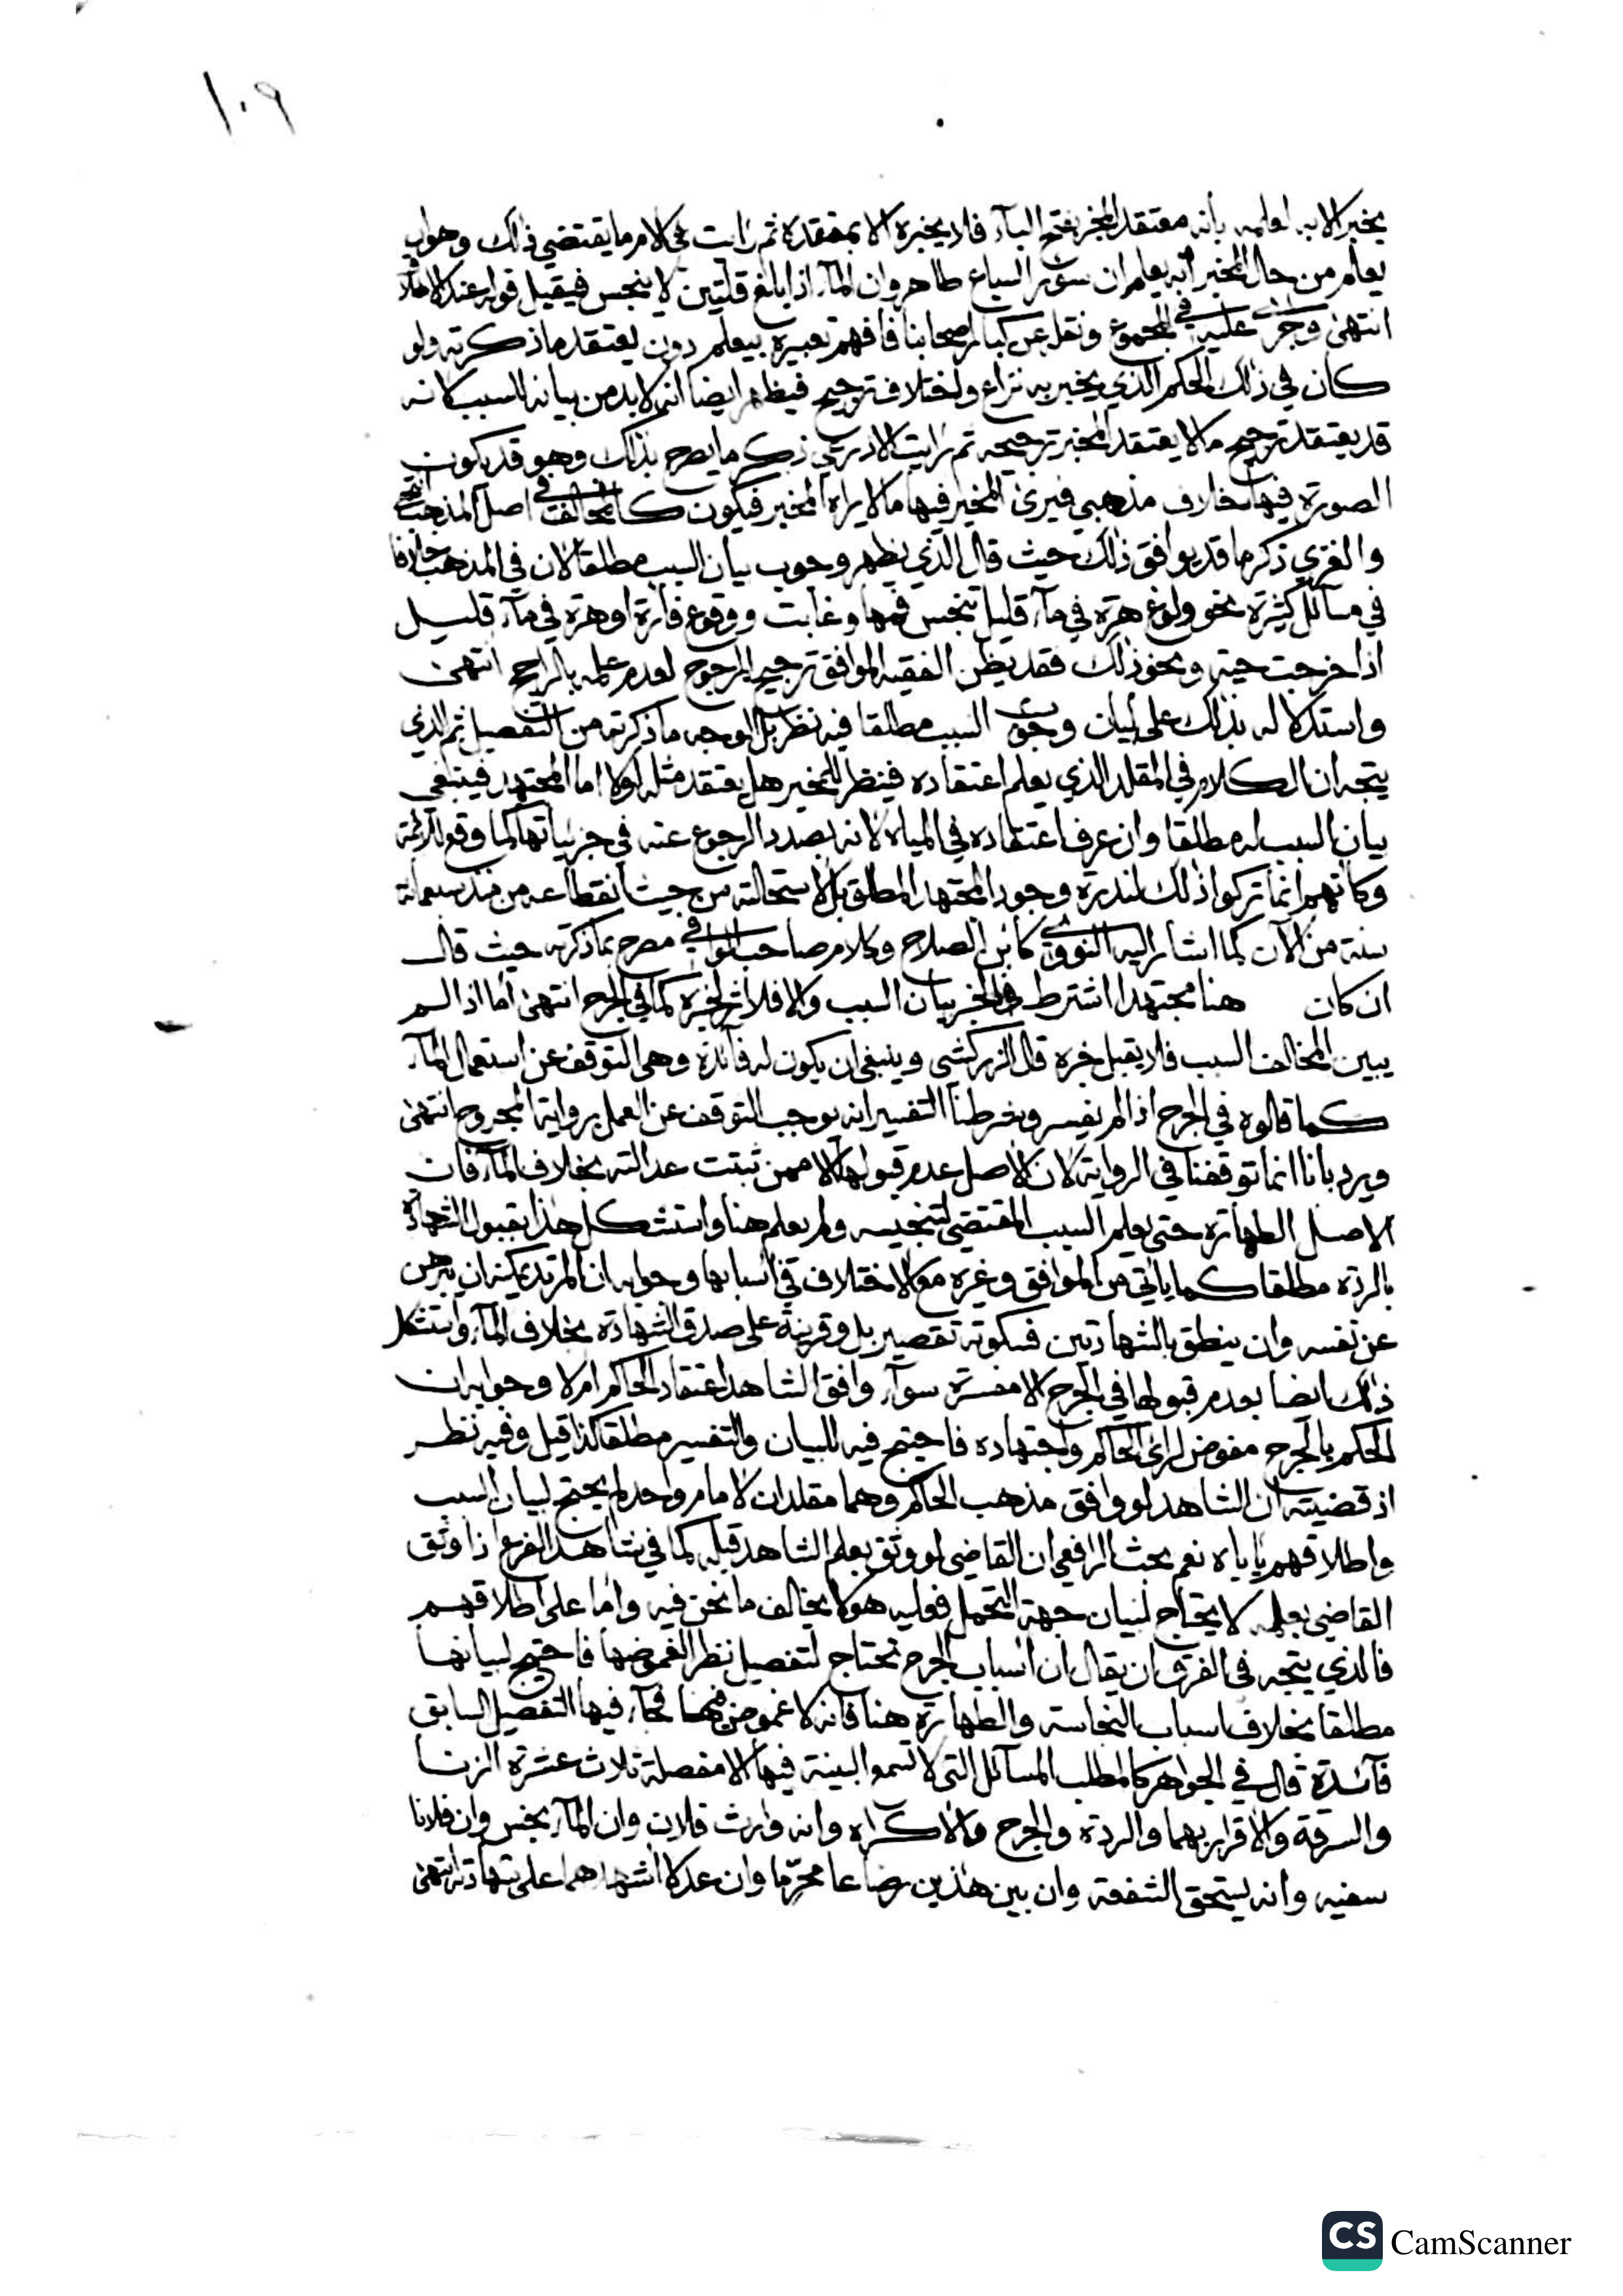 ١٠٩
يخبر الا به لعلمه بأنه معتقد المخبر بفتح البآء فلا يخبره الا بمعتقده ثم رايت في الام ما يقتضي ذلك وهو ان
يعلم من حال المخبر انه يعلم ان سؤر السباع طاهر وان المآء اذا بلغ قلتين لا ينجس فيقبل قوله عند الاطلاق
انتهى وجرى عليه في المجموع ونقله عن كبار اصحابنا فافهم تعبيره بيعلم دون يعتقد ما ذكرته ولو
كان في ذلك الحكم الذي يخبر به نزاع واختلاف ترجيح فيظهر ايضا انه لا بد من بيانه للسبب لانه
قد يعتقد ترجيح ما لا يعتقد المخبر ترجيحه ثم رايت الاذرعي ذكر ما يصرح بذلك وهو قد يكون
الصورة فيها خلاف مذهبي فيرى المخبر فيها ما لا يراه المخبر فيكون كالمخالف في اصل المذهب انتهى
والغزي ذكر ما قد يوافق ذلك حيث قال الذي يظهر وجوب بيان السبب مطلقا لان في المذهب خلافا
في مسائل كثيرة نحو ولوغ هرة في مآء قليل تنجس فمها وغابت ووقوع فأرة او هرة في مآء قليل
اذا خرجت حية ونحو ذلك فقد يظن الفقيه الموافق ترجيح المرجوح لعدم علمه بالراجح انتهى
واستدلاله بذلك على بيان السبب مطلقا فيه نظر بل الوجه ما ذكرته من التفصيل ثم الذي
يتجه ان الكلام في المقلد الذي يعلم اعتقاده فينظر للمخبر هل يعتقد مثله اولا اما المجتهد فينبغي
بيان السبب له مطلقا وان عرف اعتقاده في المياه لانه بصدد الرجوع عنه في جزئياتها كما وقع للائمة
وكانهم انما تركوا ذلك لندرة وجود المجتهد المطلق بل لاستحالته من حيث انقطاعه من منذ سبعمائة
سنة من الآن كما اشار اليه النووي كابن الصلاح وكلام صاحب الوافي مصرح بما ذكرته حيث قال
ان كان هنا مجتهدا اشترط في المخبر بيان السبب والا فلا كما في الجرح انتهى أما اذا لم
يبين المخالف السبب فلا يقبل خبره قال الزركشي وينبغي ان يكون له فائدة وهي التوقف عن استعمال المآء
كما قالوه في الجرح اذا لم يفسر وشرطنا التفسير انه يوجب التوقف عن العمل برواية المجروح انتهى
ويرد بانا انما توقفنا في الرواية لان الاصل عدم قبولها الا ممن ثبتت عدالته بخلاف المآء فان
الاصل الطهارة حتى يعلم السبب المقتضي لتنجيسه ولم يعلم هنا واستشكل هذا بقبول الشهادة
بالردة مطلقا كما ياتي من الموافق وغيره مع الاختلاف في اسبابها وجوابه ان المرتد يمكنه ان يبرهن
عن نفسه وان ينطق بالشهادتين فسكوته تقصير بل وقرينة على صدق الشهادة بخلاف المآء واستشكل
ذلك ايضا بعدم قبولها في الجرح الا مفسرة سوآء وافق الشاهد اعتقاد الحاكم ام لا وجوابه ان
الحكم بالجرح مفوض لراي الحاكم واجتهاده فاحتيج فيه للبيان والتفسير مطلقا كذا قيل وفيه نظر
اذ قضيته ان الشاهد لو وافق مذهب الحاكم وهما مقلدان لامام واحد لم يحتج لبيان السبب
واطلاقهم يأباه نعم بحث الرافعي ان القاضي لو وثق بعلم الشاهد قبله كما في شاهد الفرع اذا وثق
القاضي بعلمه لا يحتاج لبيان جهة التحمل فعليه هو لا يخالف ما نحن فيه واما على اطلاقهم
فالذي يتجه في الفرق ان يقال ان اسباب الجرح تحتاج لتفصيل نظر الغموضها فاحتيج لبيانها
مطلقا بخلاف اسباب النجاسة والطهارة هنا فانه لا غموض فيها فجآء فيها التفصيل السابق
فآئدة قال في الجواهر كالمطلب المسائل التي لا تسمع البينة فيها الا مفصلة ثلاث عشرة الزنا
والسرقة والاقرار بهما والردة والجرح والاكراه وانه وارث فلان وان المآء نجس وان فلانا
سفيه وانه يستحق الشفعة وان بين هذين رضاعا محرما وان عدلا اشهدهما على شهادته انتهى
CS CamScanner